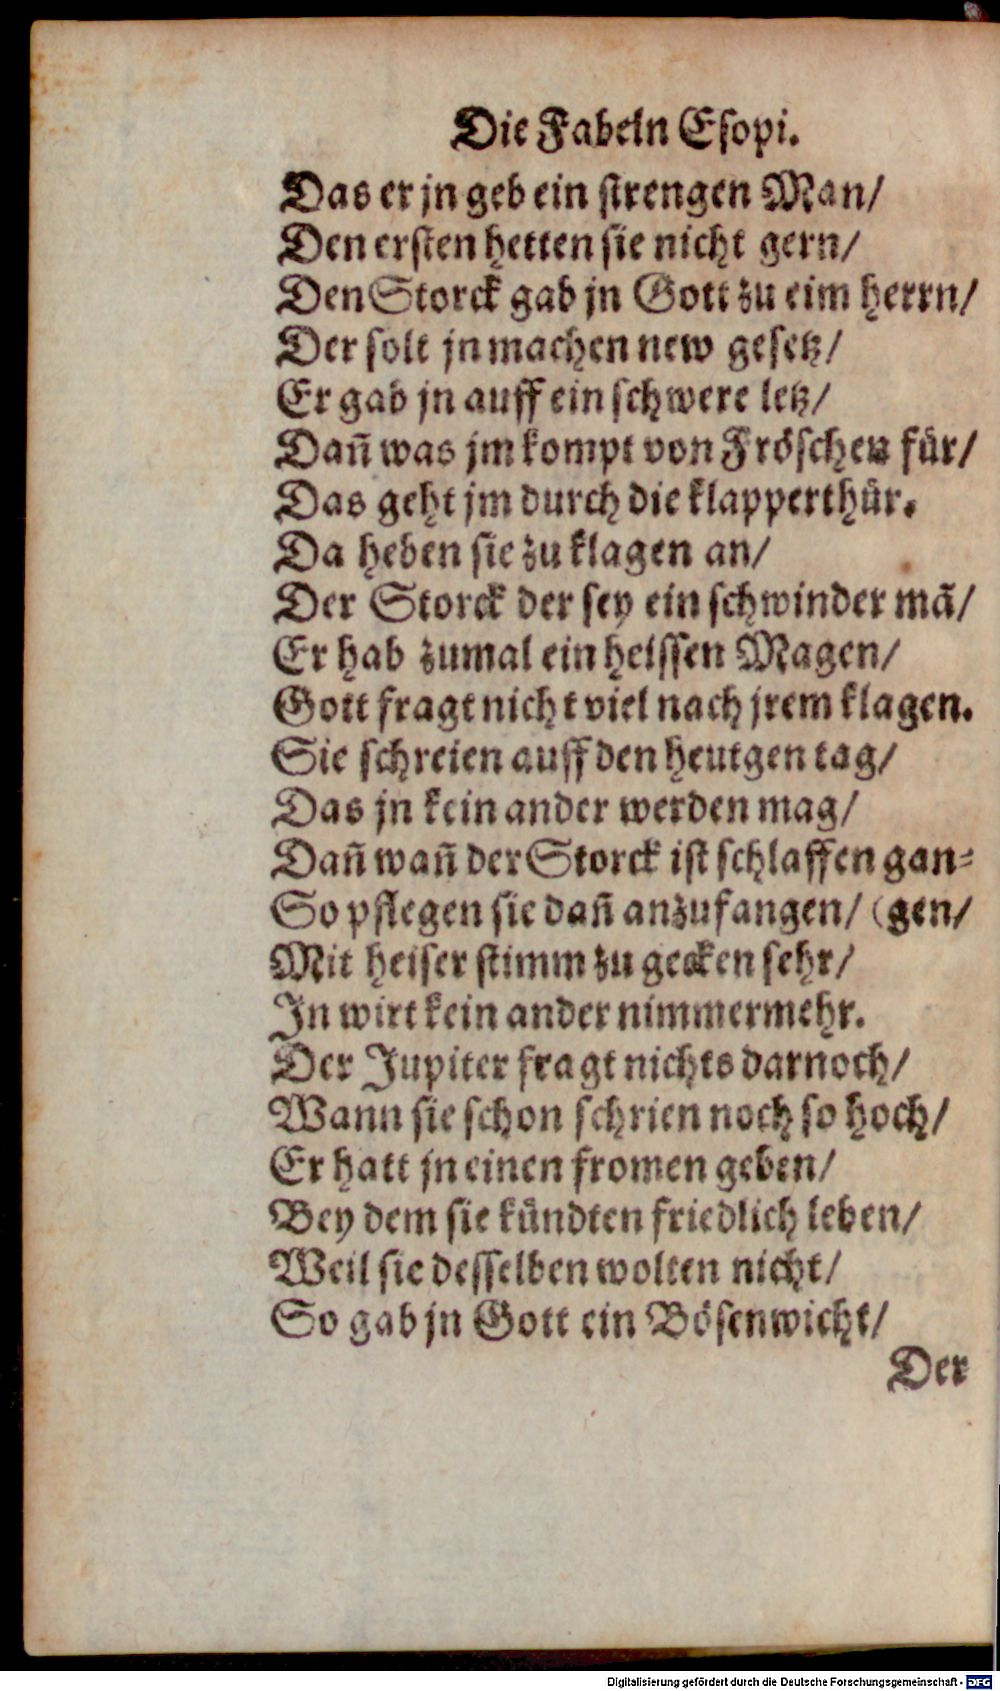 Die Fabeln Esopi.
Das er jn geb ein strengen Man/
Den ersten hetten sie nicht gern/
Den Storck gab jn Gott zu eim herrn/
Der solt jn machen new gesetz/
Er gab jn auff ein schwere letz/
Dañ was jm kompt von Fröschen für/
Das geht jm durch die klapperthür.
Da heben sie zu klagen an/
Der Storck der sey ein schwinder mã/
Er hab zumal ein heissen Magen/
Gott fragt nicht viel nach jrem klagen.
Sie schreien auff den heutgen tag/
Das jn kein ander werden mag/
Dañ wañ der Storck ist schlaffen gan⸗
So pflegen sie dañ anzufangen/ (gen/
Mit heiser stimm zu gecken sehr/
In wirt kein ander nimmermehr.
Der Jupiter fragt nichts darnoch/
Wann sie schon schrien noch so hoch/
Er hatt jn einen fromen geben/
Bey dem sie kündten friedlich leben/
Weil sie desselben wolten nicht/
So gab jn Gott ein Bösenwicht/
Der
Digitalisierung gefördert durch die Deutsche Forschungsgemeinschaft - DFG